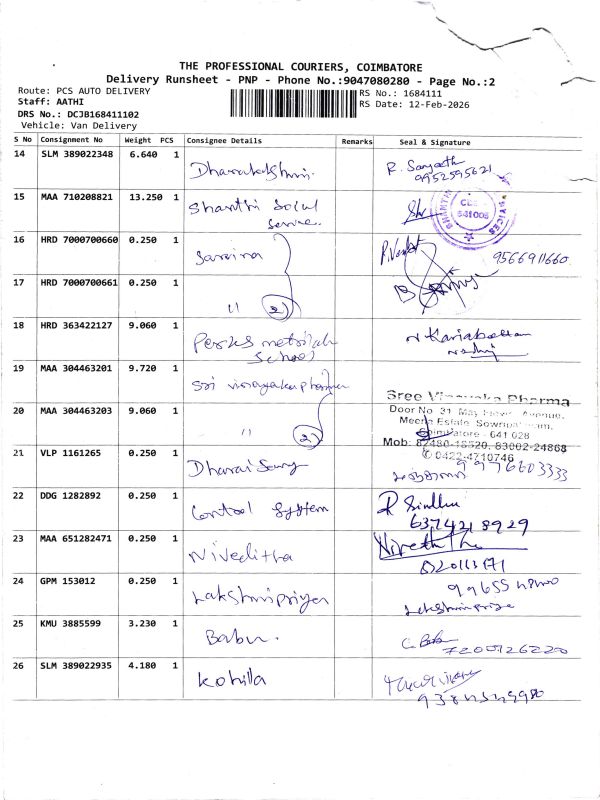 THE PROFESSIONAL COURIERS, COIMBATORE
Delivery Runsheet - PNP - Phone No.:9047080280 - Page No.:2
Route: PCS AUTO DELIVERY
Staff: AATHI
DRS No.: DCJB168411102
Vehicle: Van Delivery
RS No.: 1684111
RS Date: 12-Feb-2026
S No Consignment No Weight PCS Consignee Details Remarks Seal & Signature
14 SLM 389022348 6.640 1
R. Sangeeth
9952595621
15 MAA 710208821 13.250 1 Shanthi Social
Service.
SHANTHI SERVICES
641005
16 HRD 7000700660 0.250 1 Sarina
R. Venkat
9566911660
17 HRD 7000700661 0.250 1 " (2)
18 HRD 363422127 9.060 1 Perks metric
School
19 MAA 304463201 9.720 1 Sri vinayaka pharma
20 MAA 304463203 9.060 1 " (2)
Sree Vinayaka Pharma
Door No 31 Avenue,
Meena Estate, Sowripalayam,
Coimbatore - 641 028
Mob: 82480-18520, 83002-24868
0422-4710746
21 VLP 1161265 0.250 1
9976603333
22 DDG 1282892 0.250 1 Control System
R Sindhu
6374218929
23 MAA 651282471 0.250 1 Niveditha
24 GPM 153012 0.250 1 Lakshmipriya
99655
Lakshmipriya
25 KMU 3885599 3.230 1 Babu.
C. Babu
7200926220
26 SLM 389022935 4.180 1 Kohilla